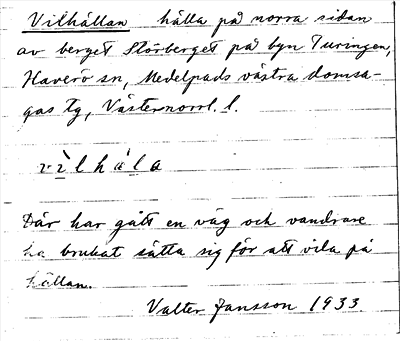 Vilhällan hälla på norra sidan
av berget Storberget på byn Turingen,
Haverö sn, Medelpads västra domsa-
gas tg, Västernorrl. l.
vìlhála
Där har gått en väg och vandrare
ha brukat sätta sig för att vila på
hällan.
Valter Jansson 1933